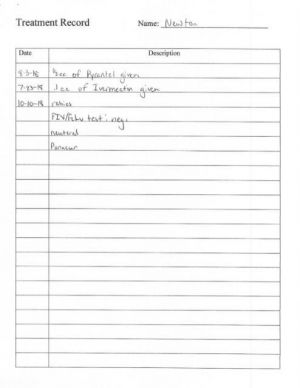 Treatment Record Name: Newton
Date Description
cc of Pyrantel given
7-23-18 .1cc of Ivermectin given
10-10-18 rabies
FIV/FeLV test: neg.
neutered